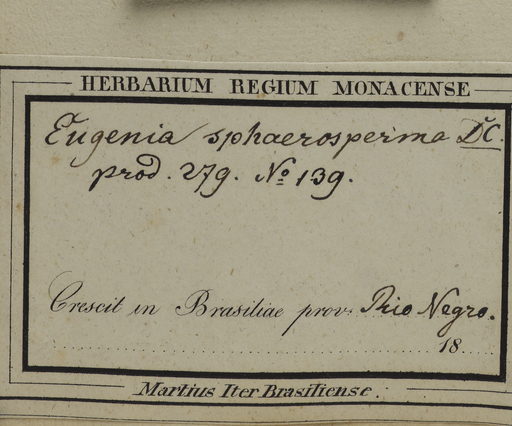 HERBARIUM REGIUM MONACENSE
Eugenia sphaerosperma DC.
prod. 279. No 139.
Crescit in Brasiliae prov. Rio Negro.
18
Martius Iter Brasiliense.